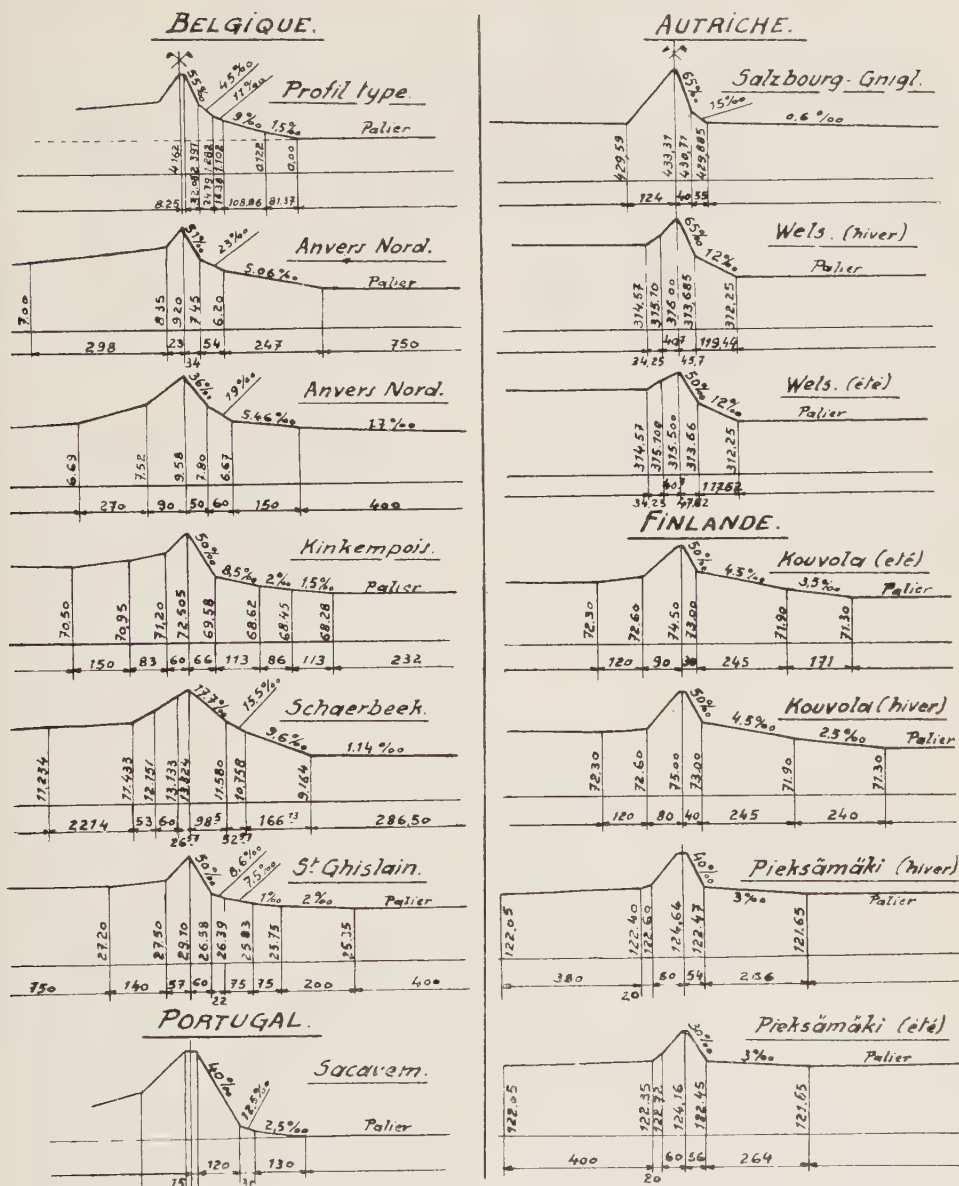 BELGIQUE.
55‰ 45‰ 11‰ 9‰ 1.5‰
Profil type.
Palier
4.162 2.397 1.282 1.102 0.122 0.00
8.25 32.08 24.79 16.38 108.86 81.37
Anvers Nord.
51‰ 23‰ 5.06‰ Palier
7.00 8.35 9.20 7.45 6.20
298 23 34 54 247 750
Anvers Nord.
36‰ 19‰ 5.46‰ 1.7‰
6.69 7.52 9.58 7.80 6.67
270 90 50 60 150 400
Kinkempois.
50‰ 8,5‰ 2‰ 1.5‰ Palier
70,50 70,95 71,20 72.505 69.58 68.62 68.45 68.28
150 83 60 66 113 86 113 232
Schaerbeek.
17.7‰ 15.5‰ 9,6‰ 1.14‰
11.234 11.433 12.751 13.733 13.324 11.580 10,758 9.164
221.4 53 60 98⁵ 166⁷³ 286,50
St Ghislain.
50‰ 8,6‰ 7.5‰ 1‰ 2‰ Palier
27.20 27.50 29.10 26.58 26.39 25.83 25.75 25.35
750 140 57 60 22 75 75 200 400
PORTUGAL.
Sacavem.
40‰ 12.5‰ 2,5‰ Palier
15 120 130
AUTRICHE.
Salzbourg-Gnigl.
65‰ 15‰ 0.6‰
429,59 433,31 430,71 429.885
124 40 55
Wels. (hiver)
65‰ 12‰ Palier
314,57 315.10 316.00 313,685 312.25
34,25 40⁷ 45,7 119,44
Wels. (été)
50‰ 12‰ Palier
314.57 315.100 315.500 313.66 312.25
34,25 40⁷ 47.62 117.62
FINLANDE.
Kouvola (été)
50‰ 4.5‰ 3,5‰ Palier
72.30 72.60 74.50 73.00 71.90 71.30
120 90 30 245 171
Kouvola (hiver)
50‰ 4.5‰ 2,5‰ Palier
72.30 72.60 75.00 73.00 71.90 71.30
120 80 40 245 240
Pieksämäki (hiver)
40‰ 3‰ Palier
122.05 122.40 122.60 124,64 122.47 121.65
380 20 60 54 256
Pieksämäki (été)
30‰ 3‰ Palier
122.05 122.35 124.16 122.45 121.65
400 20 60 56 264